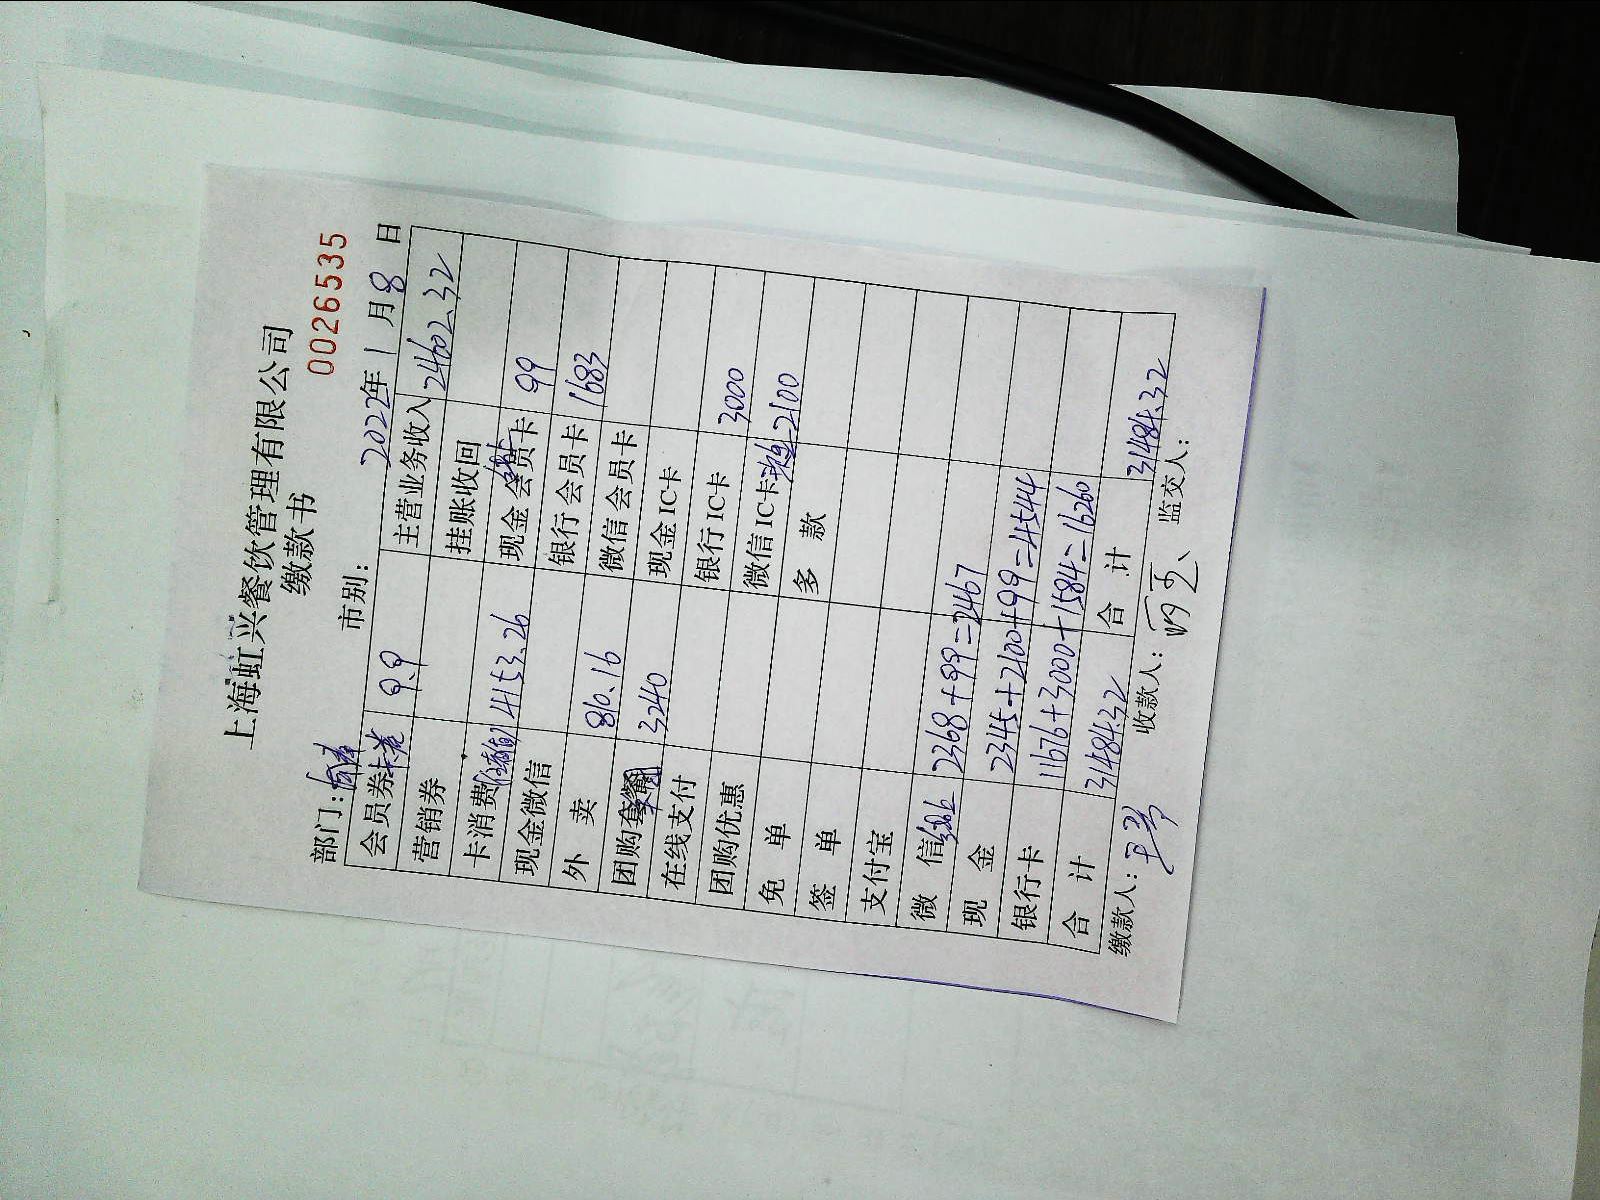 上海虹兴餐饮管理有限公司
缴款书
0026535
部门: 市别: 2022年1月8日
会员券 9.9 主营业务收入 24602.32
营销券 挂账收回
卡消费 4153.26 现金会员卡 99
现金微信 银行会员卡 1683
外卖 810.16 微信会员卡
团购套餐 3240 现金IC卡
在线支付 银行IC卡 3000
团购优惠 微信IC卡 现金 2100
免单 多款
签单
支付宝
微信 2368+99=2467
现金 2345+2100+99=4544
银行卡 11676+3000+1584=16260
合计 31484.32 合计 31484.32
缴款人: 收款人: 监交人: